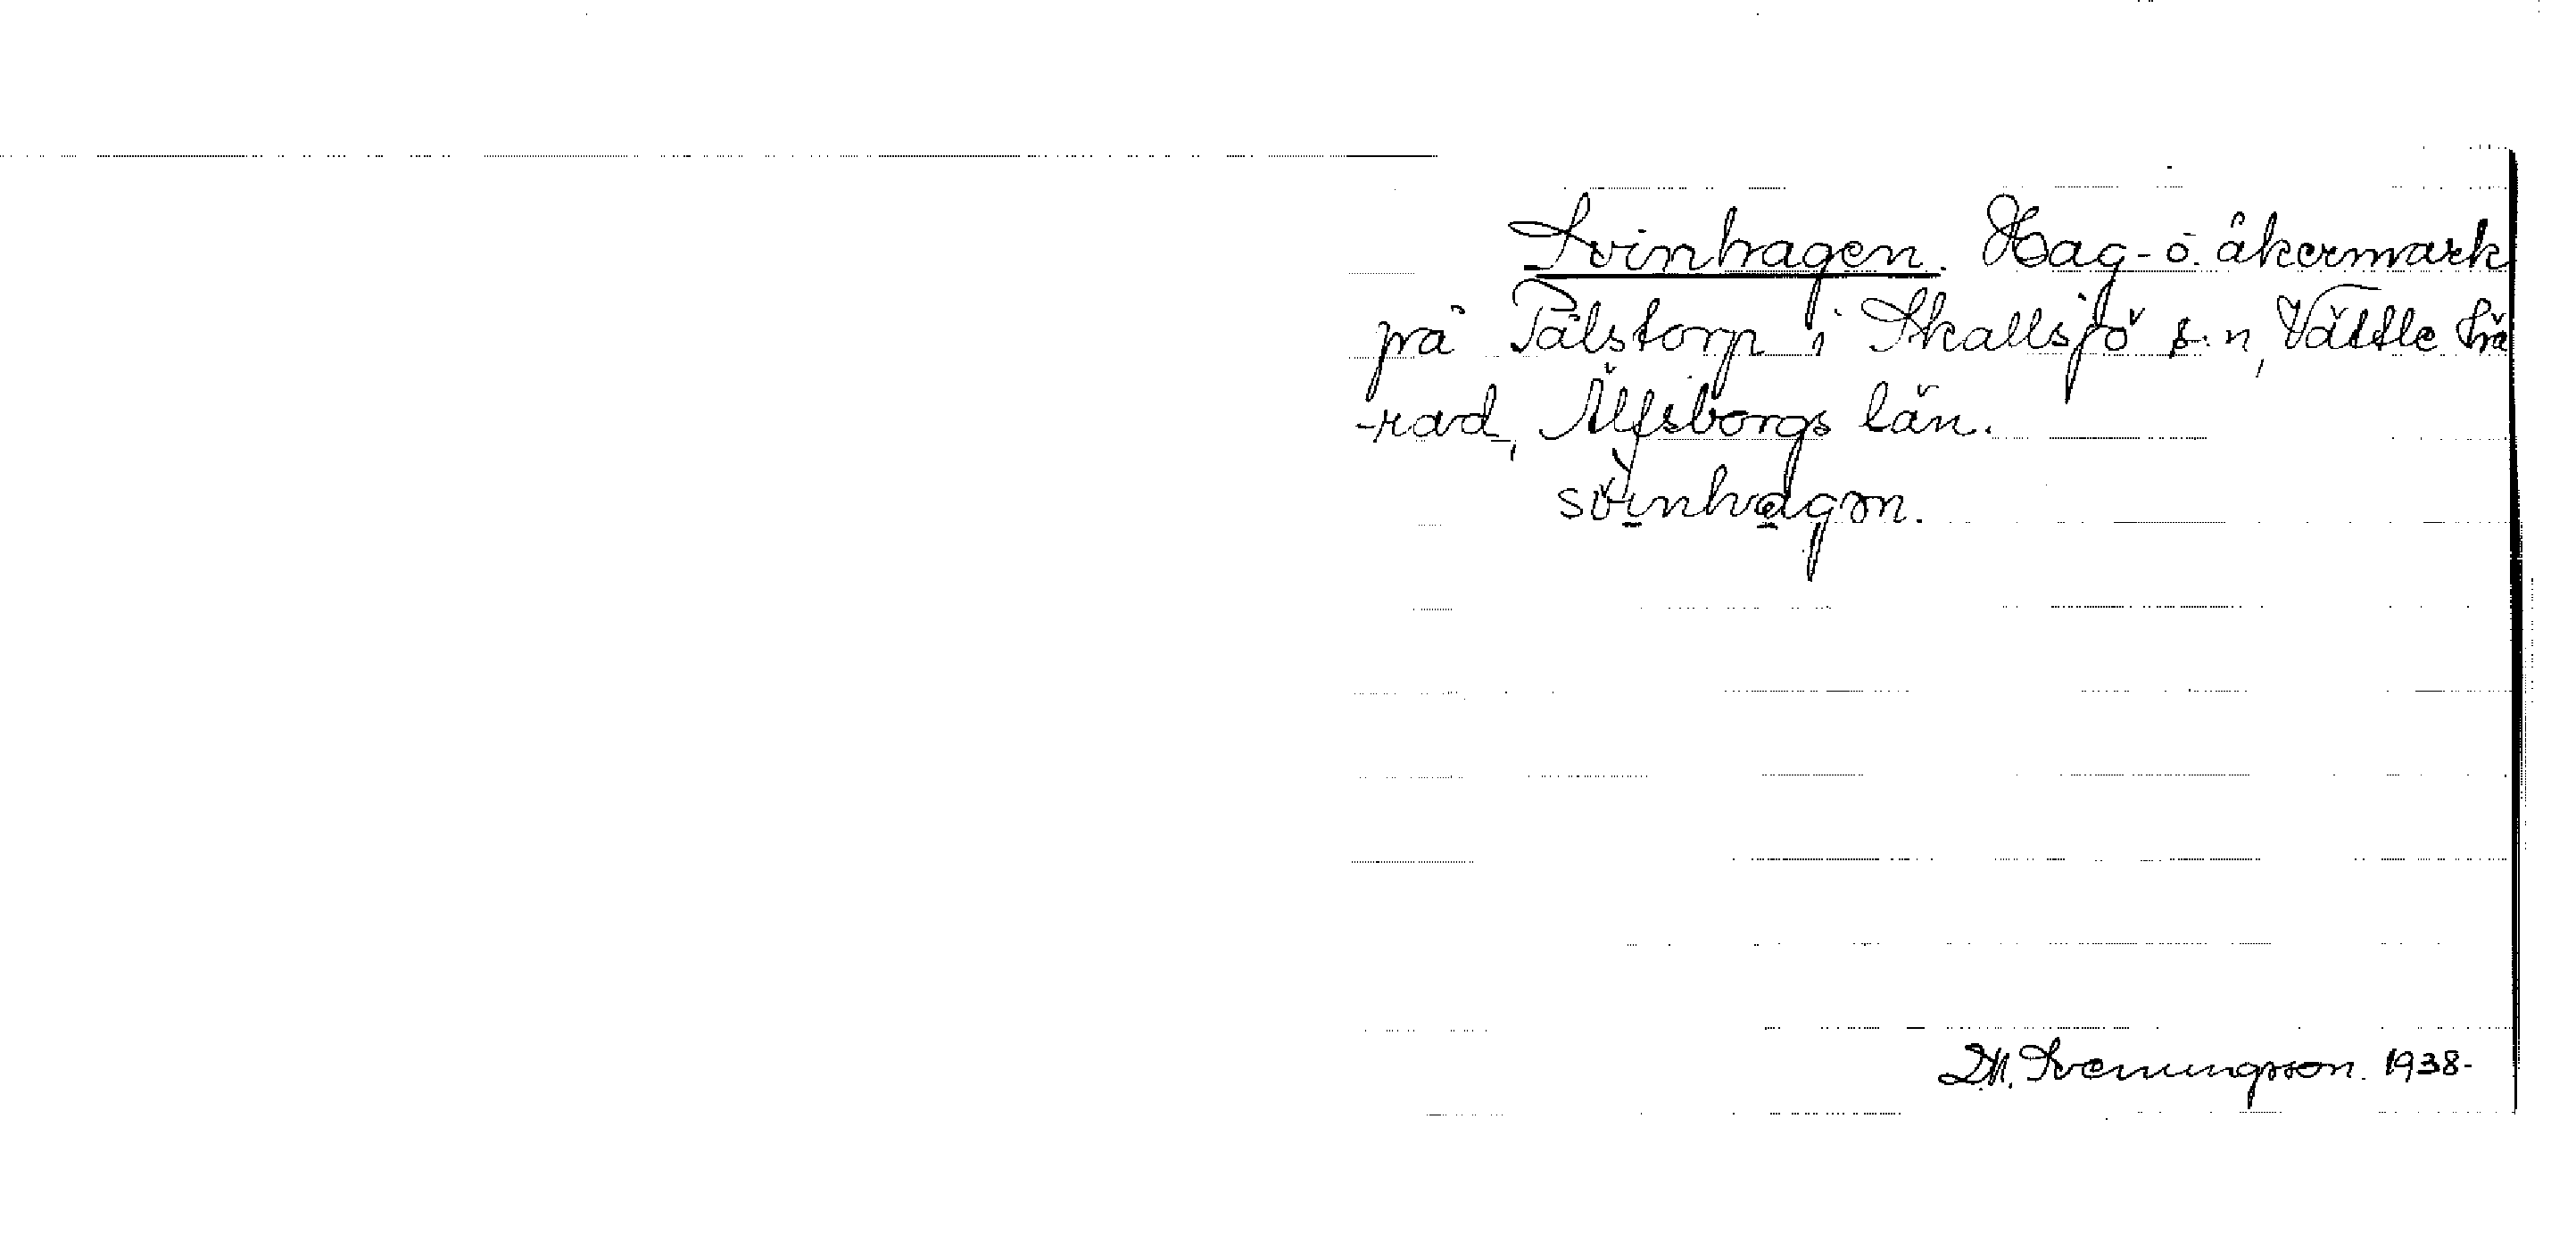 Svinhagen. Hag- o. åkermark
på Pålstorp i Skallsjö s:n, Vättle hä
-rad, Älfsborgs län.
D.M. Svenungsson. 1938-